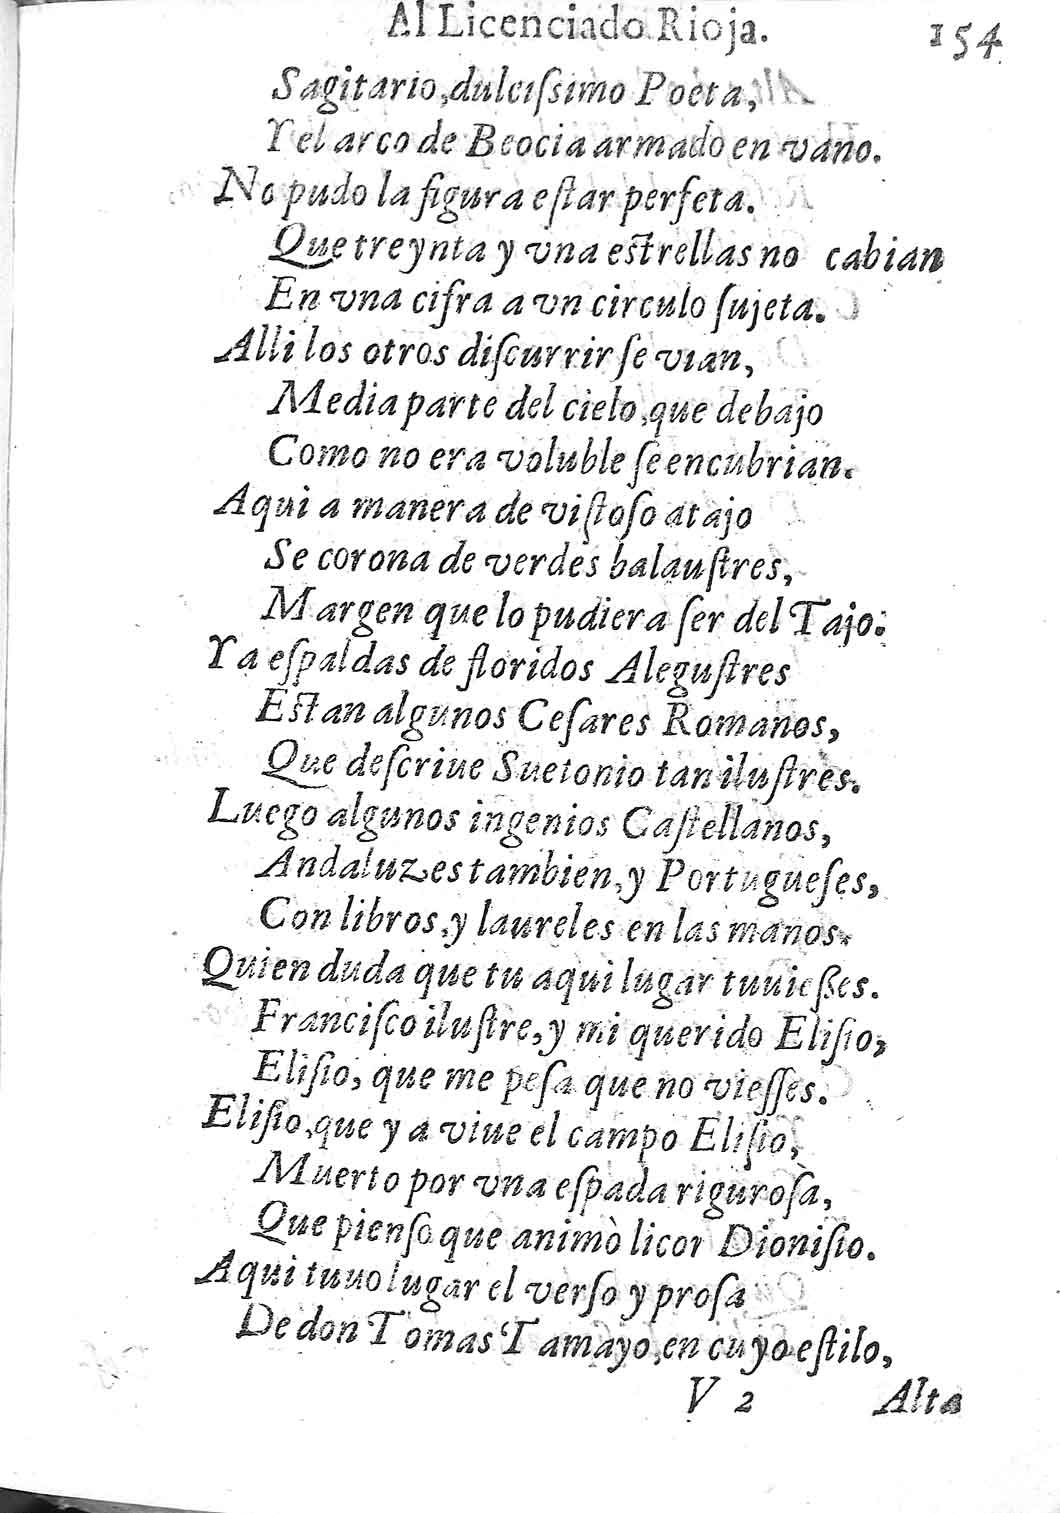 Al Licenciado Rioja. 154
Sagitario, dulciſsimo Poeta,
Y el arco de Beocia armado en vano.
No pudo la figura eſtar perfeta.
Que treynta y vna eſtrellas no cabian
En vna cifra a vn circulo ſujeta.
Alli los otros diſcurrir ſe vian,
Media parte del cielo, que debajo
Como no era voluble ſe encubrian.
Aqui a manera de viſtoſo atajo
Se corona de verdes balauſtres,
Margen que lo pudiera ſer del Tajo.
Y a eſpaldas de floridos Aleguſtres
Eſtan algunos Ceſares Romanos,
Que deſcriue Suetonio tan iluſtres.
Luego algunos ingenios Caſtellanos,
Andaluzes tambien, y Portugueſes,
Con libros, y laureles en las manos.
Quien duda que tu aqui lugar tuuieſses.
Franciſco iluſtre, y mi querido Eliſio,
Eliſio, que me peſa que no vieſſes.
Eliſio, que ya viue el campo Eliſio,
Muerto por vna eſpada riguroſa,
Que pienſo que animò licor Dioniſio.
Aqui tuuo lugar el verſo y proſa
De don Tomas Tamayo, en cuyo eſtilo,
V 2 Alta